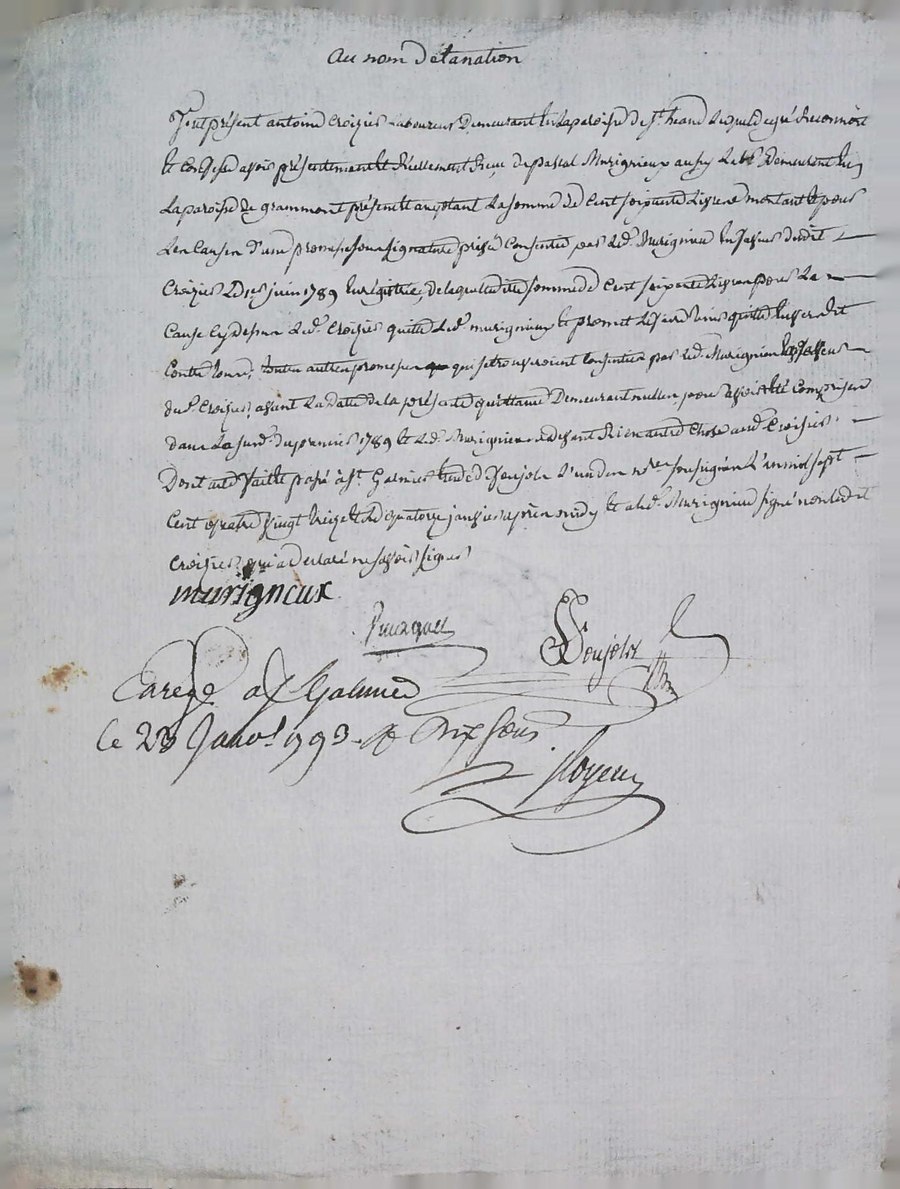 au nom de la nation
fut présent antoine Croizier Laboureur Demeurant En la paroisse de St. heand Lequel de gré Reconnoit
Et Confesse avoir présentement Et Réellement Receu de pascal Murigneux aussy Labr. Demeurant En
La paroisse de grammont présent Et acceptant La somme de Cent soixante Livres montant Et pour
L'en Causer d'une promesse sous signature privée Consentie par Led. Murigneux En faveur dudit
Croizier Le 1er juin 1789 Enregistrée, de laquelle ditte somme de Cent soixante Livres pour La
Cause Cy dessus Led. Croizier quitte Led. murigneux Et promet L'En faire tenir quitte Envers Et
Contre tous, toutes autres promesses qui se trouveroient Consenties par Led. Murigneux En faveur
dud. Croizier, avant La datte de la présente quittance Demeurant nulles pour avoir été Comprises
dans La susd. du premier juin 1789 Et Led. Murigneux ne devant Rien autre Chose aud. Croizier
Dont acte fait Et passé à St. Galmier Etude de Soujols L'un des nres soussignés L'an mil sept
Cent quatre vingt treize Et Le quatorze janvier après midy Et a Led. Murigneux signé non Ledit
Croizier qui a Declaré ne savoir signer
murigneux
Soujols nre
Enregé a St Galmier
le 23 Janvr. 1793. R dix sous